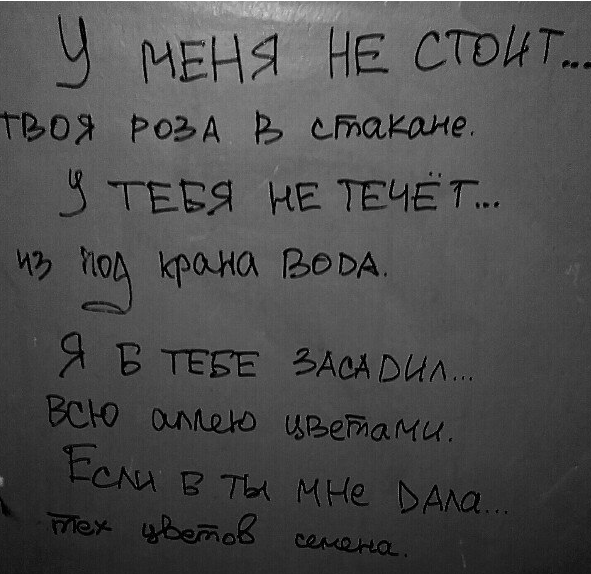 У МЕНЯ НЕ СТОИТ...
ТВОЯ РОЗА В СТАКАНЕ.
У ТЕБЯ НЕ ТЕЧЁТ...
ИЗ ПОД КРАНА ВОДА.
Я Б ТЕБЕ ЗАСАДИЛ...
ВСЮ АЛЛЕЮ ЦВЕТАМИ.
ЕСЛИ Б ТЫ МНЕ ДАЛА...
ТЕХ ЦВЕТОВ СЕМЕНА.